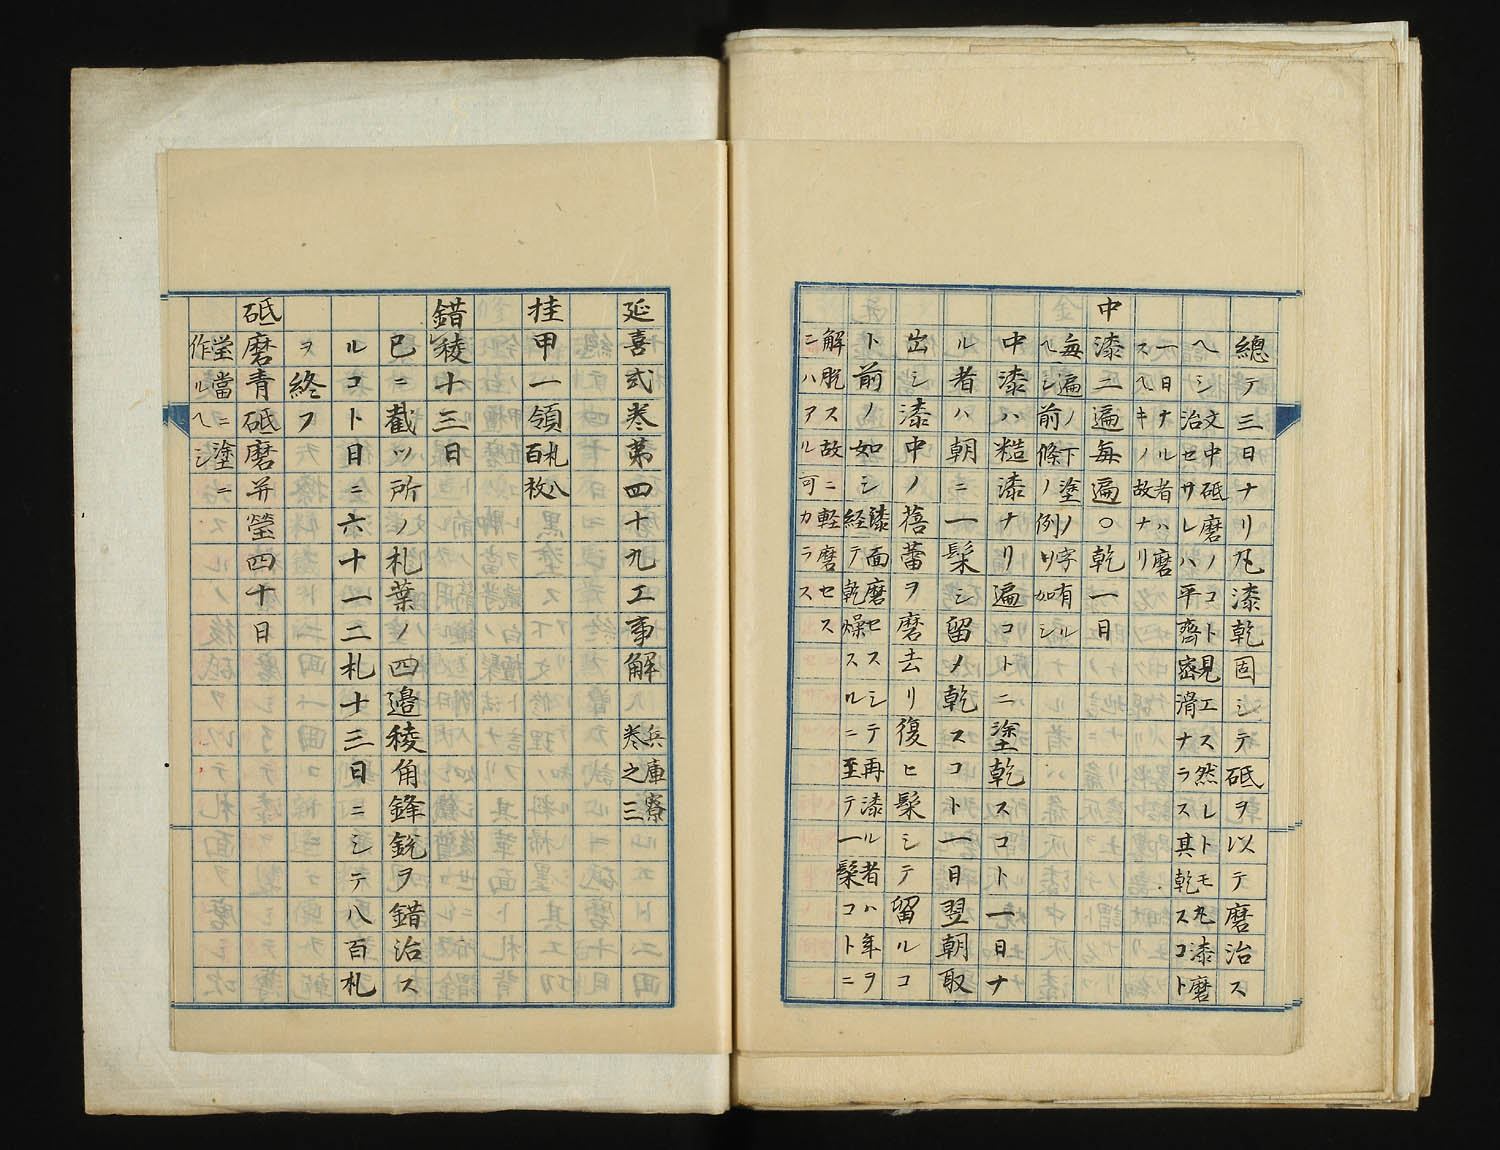 總テ三日ナリ凡漆乾固シテ砥ヲ以テ磨治ス
ヘシ文中砥磨ノコト見エス然レトモ凡漆磨
治セサレハ平齊密滑ナラス其乾スコト
一日ナル者ハ磨
スヘキノ故ナリ
中漆二遍每遍〇乾一日
每遍ノ下塗ノ字有ル
ヘシ前條ノ例ノ如シ
中漆ハ糙漆ナリ遍コトニ塗乾スコト一日ナ
ル者ハ朝ニ一髹シ留メ乾スコト一日翌朝取
出シ漆中ノ蓓蕾ヲ磨去リ復ヒ髹シテ留ルコ
ト前ノ如シ
漆面磨セスシテ再漆ル者ハ年ヲ
経テ乾燥スルニ至テ一髹コトニ
解脱ス故ニ軽磨セス
ニハアル可カラス
延喜式卷第四十九工事解
兵庫寮
卷之三
挂甲一領
札八
百枚
錯稜十三日
已ニ截ツ所ノ札葉ノ四邉稜角鋒鋭ヲ錯治ス
ルコト日ニ六十一二札十三日ニシテ八百札
ヲ終フ
砥磨青砥磨并瑩四十日
瑩當ニ塗ニ
作ルヘシ